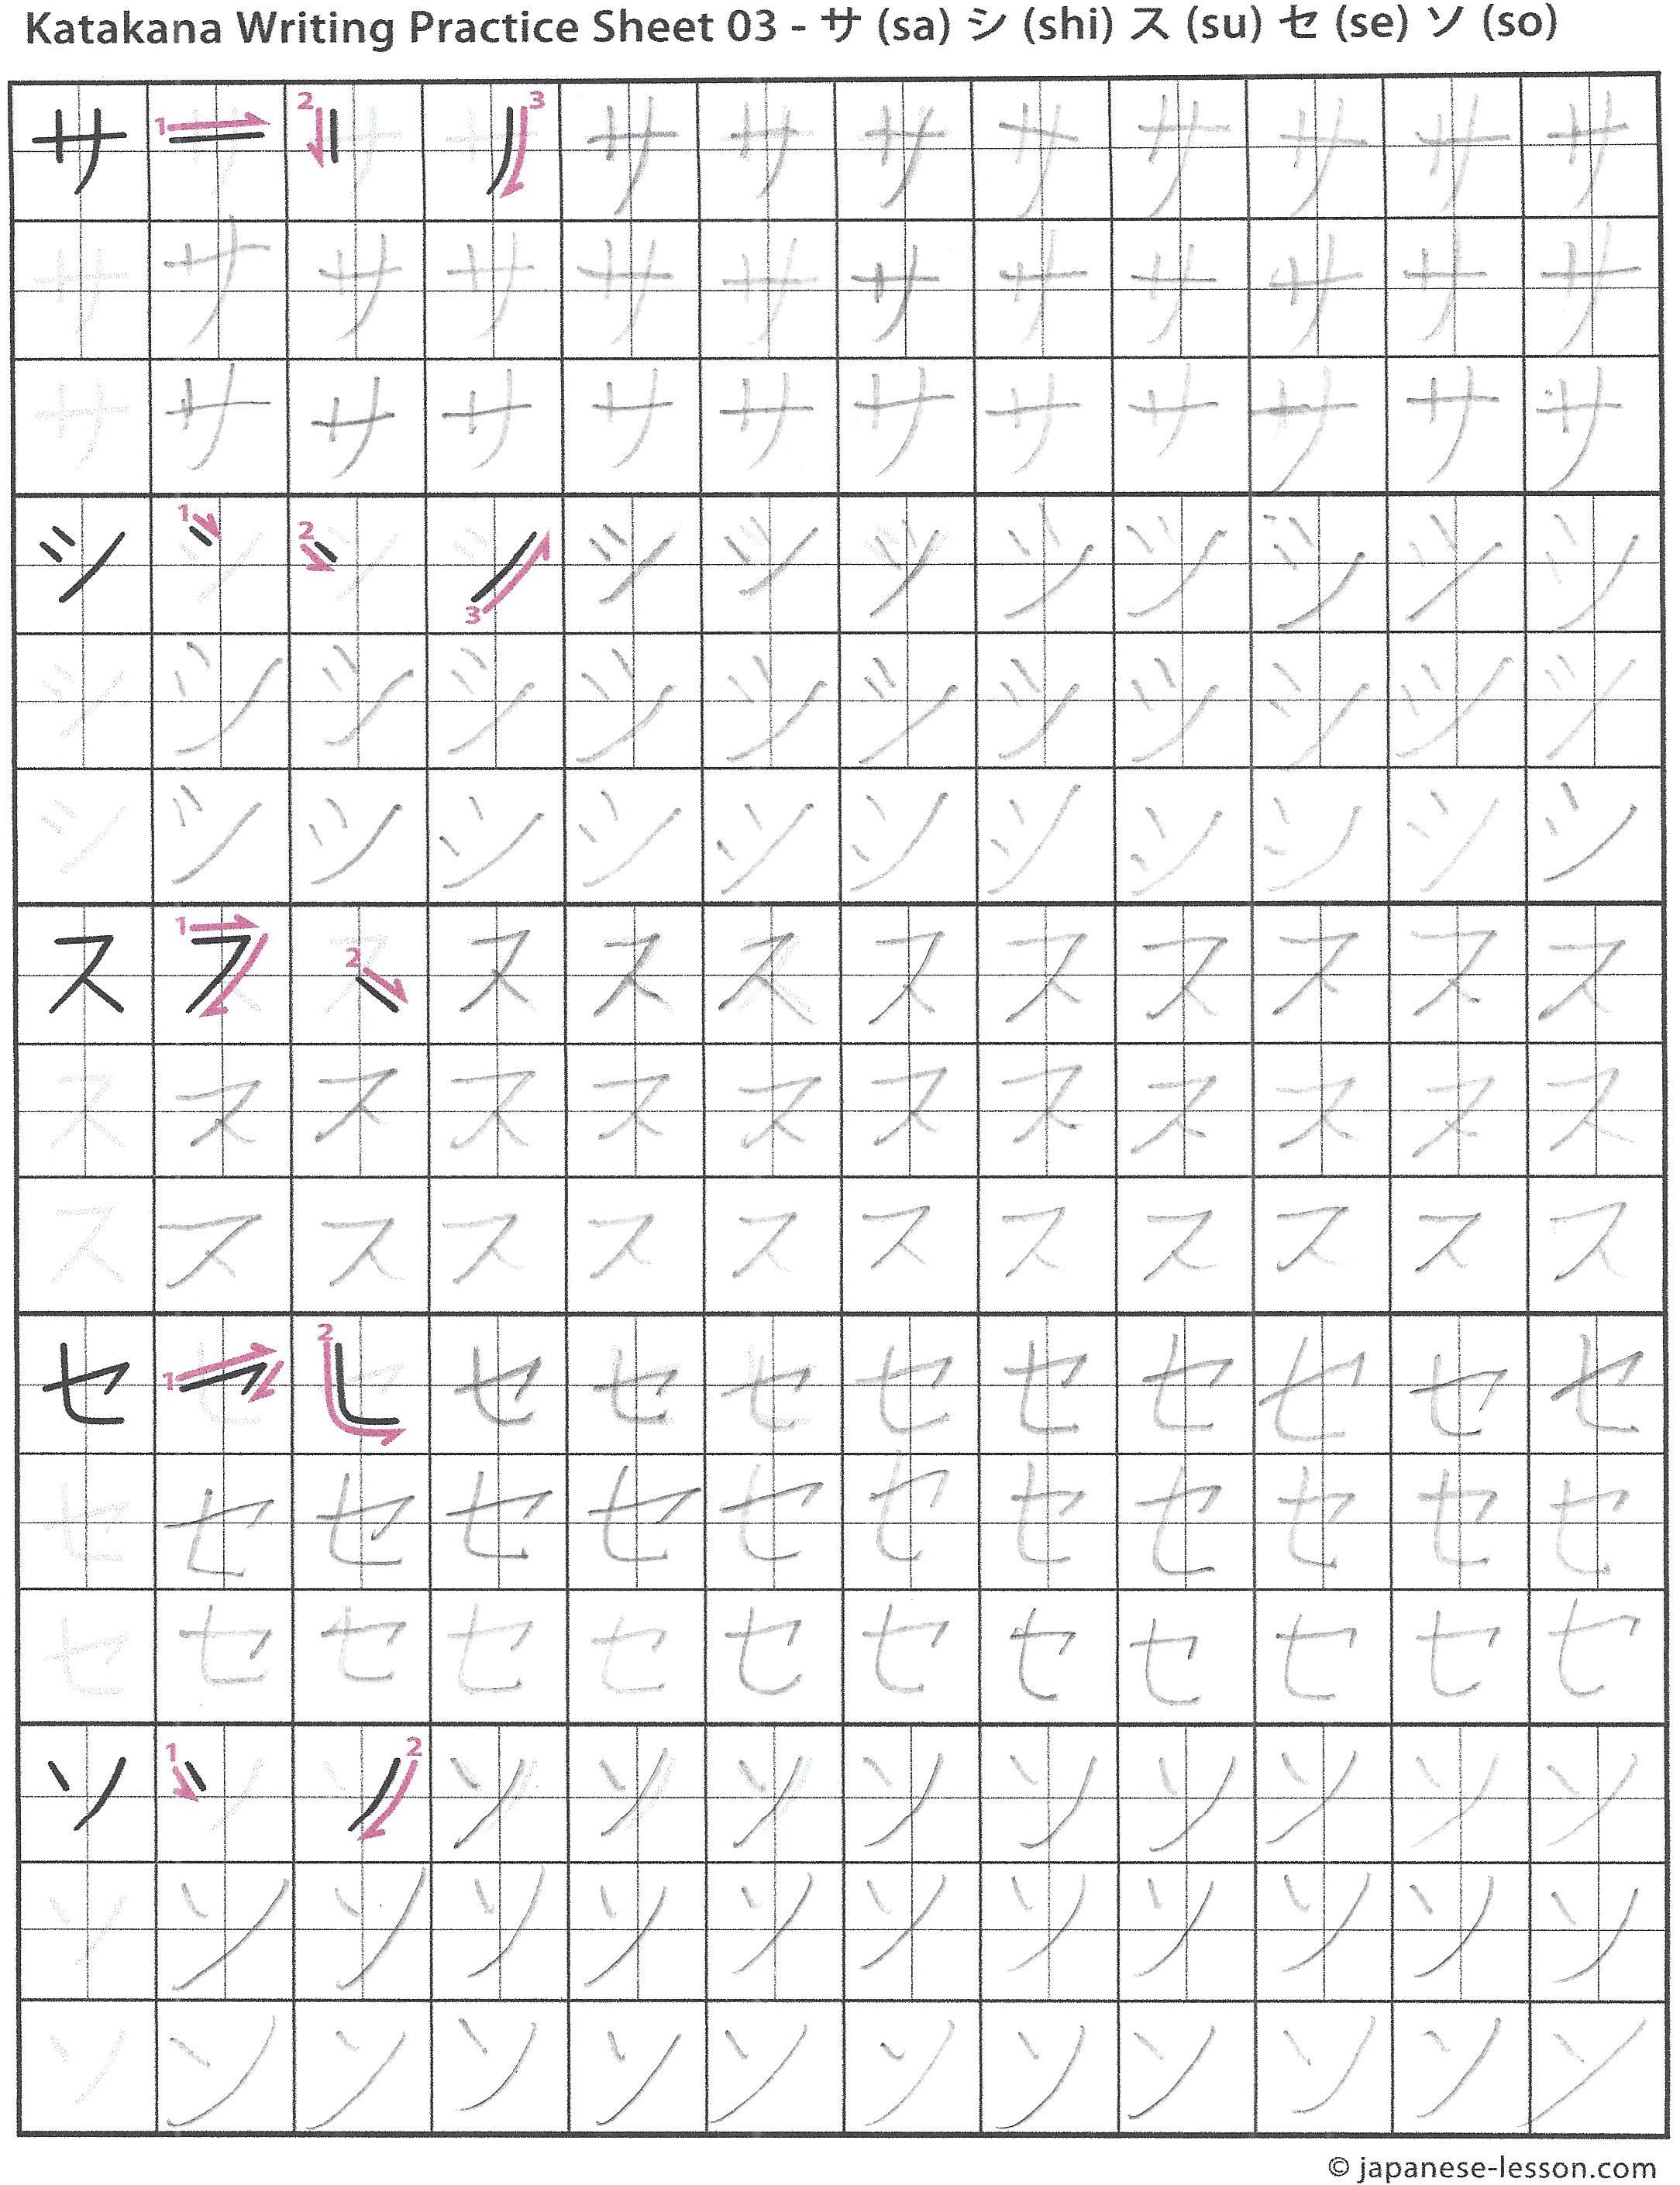 Katakana Writing Practice Sheet 03 - サ (sa) シ (shi) ス (su) セ (se) ソ (so)
サ 1 2 3 サ サ サ サ サ サ サ サ
サ サ サ サ サ サ サ サ サ サ サ サ
サ サ サ サ サ サ サ サ サ サ サ サ
シ 1 2 3 シ シ シ シ シ シ シ シ
シ シ シ シ シ シ シ シ シ シ シ シ
シ シ シ シ シ シ シ シ シ シ シ シ
ス 1 2 ス ス ス ス ス ス ス ス ス
ス ス ス ス ス ス ス ス ス ス ス ス
ス ス ス ス ス ス ス ス ス ス ス ス
セ 1 2 セ セ セ セ セ セ セ セ セ
セ セ セ セ セ セ セ セ セ セ セ セ
セ セ セ セ セ セ セ セ セ セ セ セ
ソ 1 2 ソ ソ ソ ソ ソ ソ ソ ソ ソ
ソ ソ ソ ソ ソ ソ ソ ソ ソ ソ ソ ソ
ソ ソ ソ ソ ソ ソ ソ ソ ソ ソ ソ ソ
© japanese-lesson.com